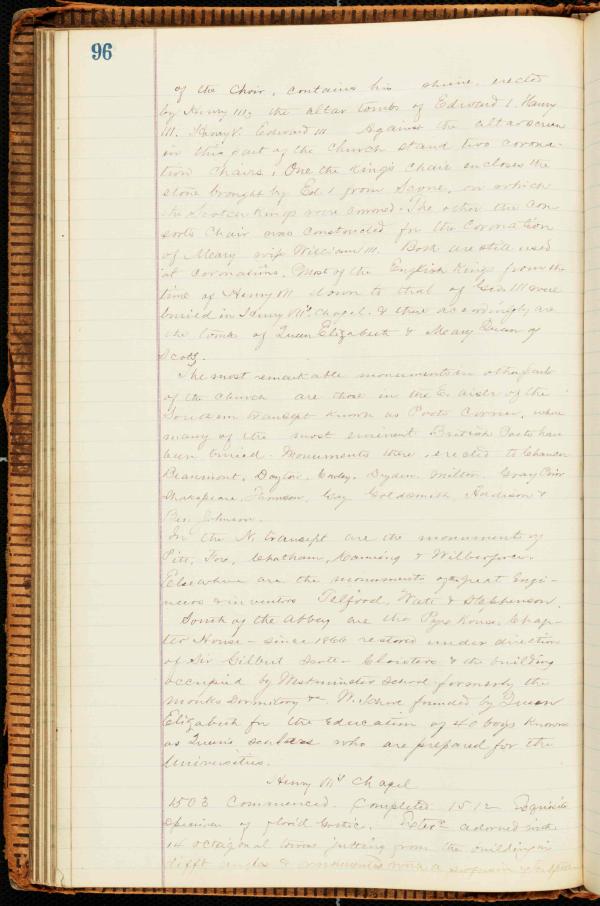 96
of the Choir, contains his shrine erected
by Henry III, the altar tombs of Edward I. Henry
III. Henry V. Edward III Against the altar screen
in this part of the Church stand two corona-
tion chairs. One the Kings Chair encloses the
stone brought by Ed. I from Scone, on which
the Scotch Kings were crowned. The other the Con
sorts Chair was constructed for the Coronation
of Meary wife William III. Both are still used
at Coronations. Most of the English Kings from the
time of Henry III down to that of Geo. III were
buried in Henry Chapel. & there accordingly are
the tombs of Queen Elizabeth & Meary Queen of
Scots.
The most remarkable monuments in other part
of the Church are those in the E. aisle of the
Southern transept known as Poets Corner, where
many of the most eminent British Poets have
been buried. Monuments there, erected to Chaucer
Beaumont, Drayton, Cowley, Dryden, Milton, Gray, Prior
Shakspeare, Thomson, Gay Goldsmith, Addison &
Ben Johnson.
In the N. transept are the monuments of
Pitt, Fox, Chatham, Canning & Wilberforce.
Elsewhere are the monuments of great Engi-
neers & inventors Telford, Watt & Stephenson.
South of the Abbey are the Pyx House, Chap-
ter House - since 1866 restored under direction
of Sir Gilbert Scott - Cloisters & the building
occupied by Westminster School formerly the
monks Dormitory &c. W. School founded by Queen
Elizabeth for the Education of 40 boys known
as Queen's scholars who are prepared for the
Universities.
Henry Chapel
1503 Commenced. Completed 1512 Exquisite
specimen of florid Gothic. Exterr adorned with
14 octagonal towers jutting from the building in
difft angles & ornamented with a